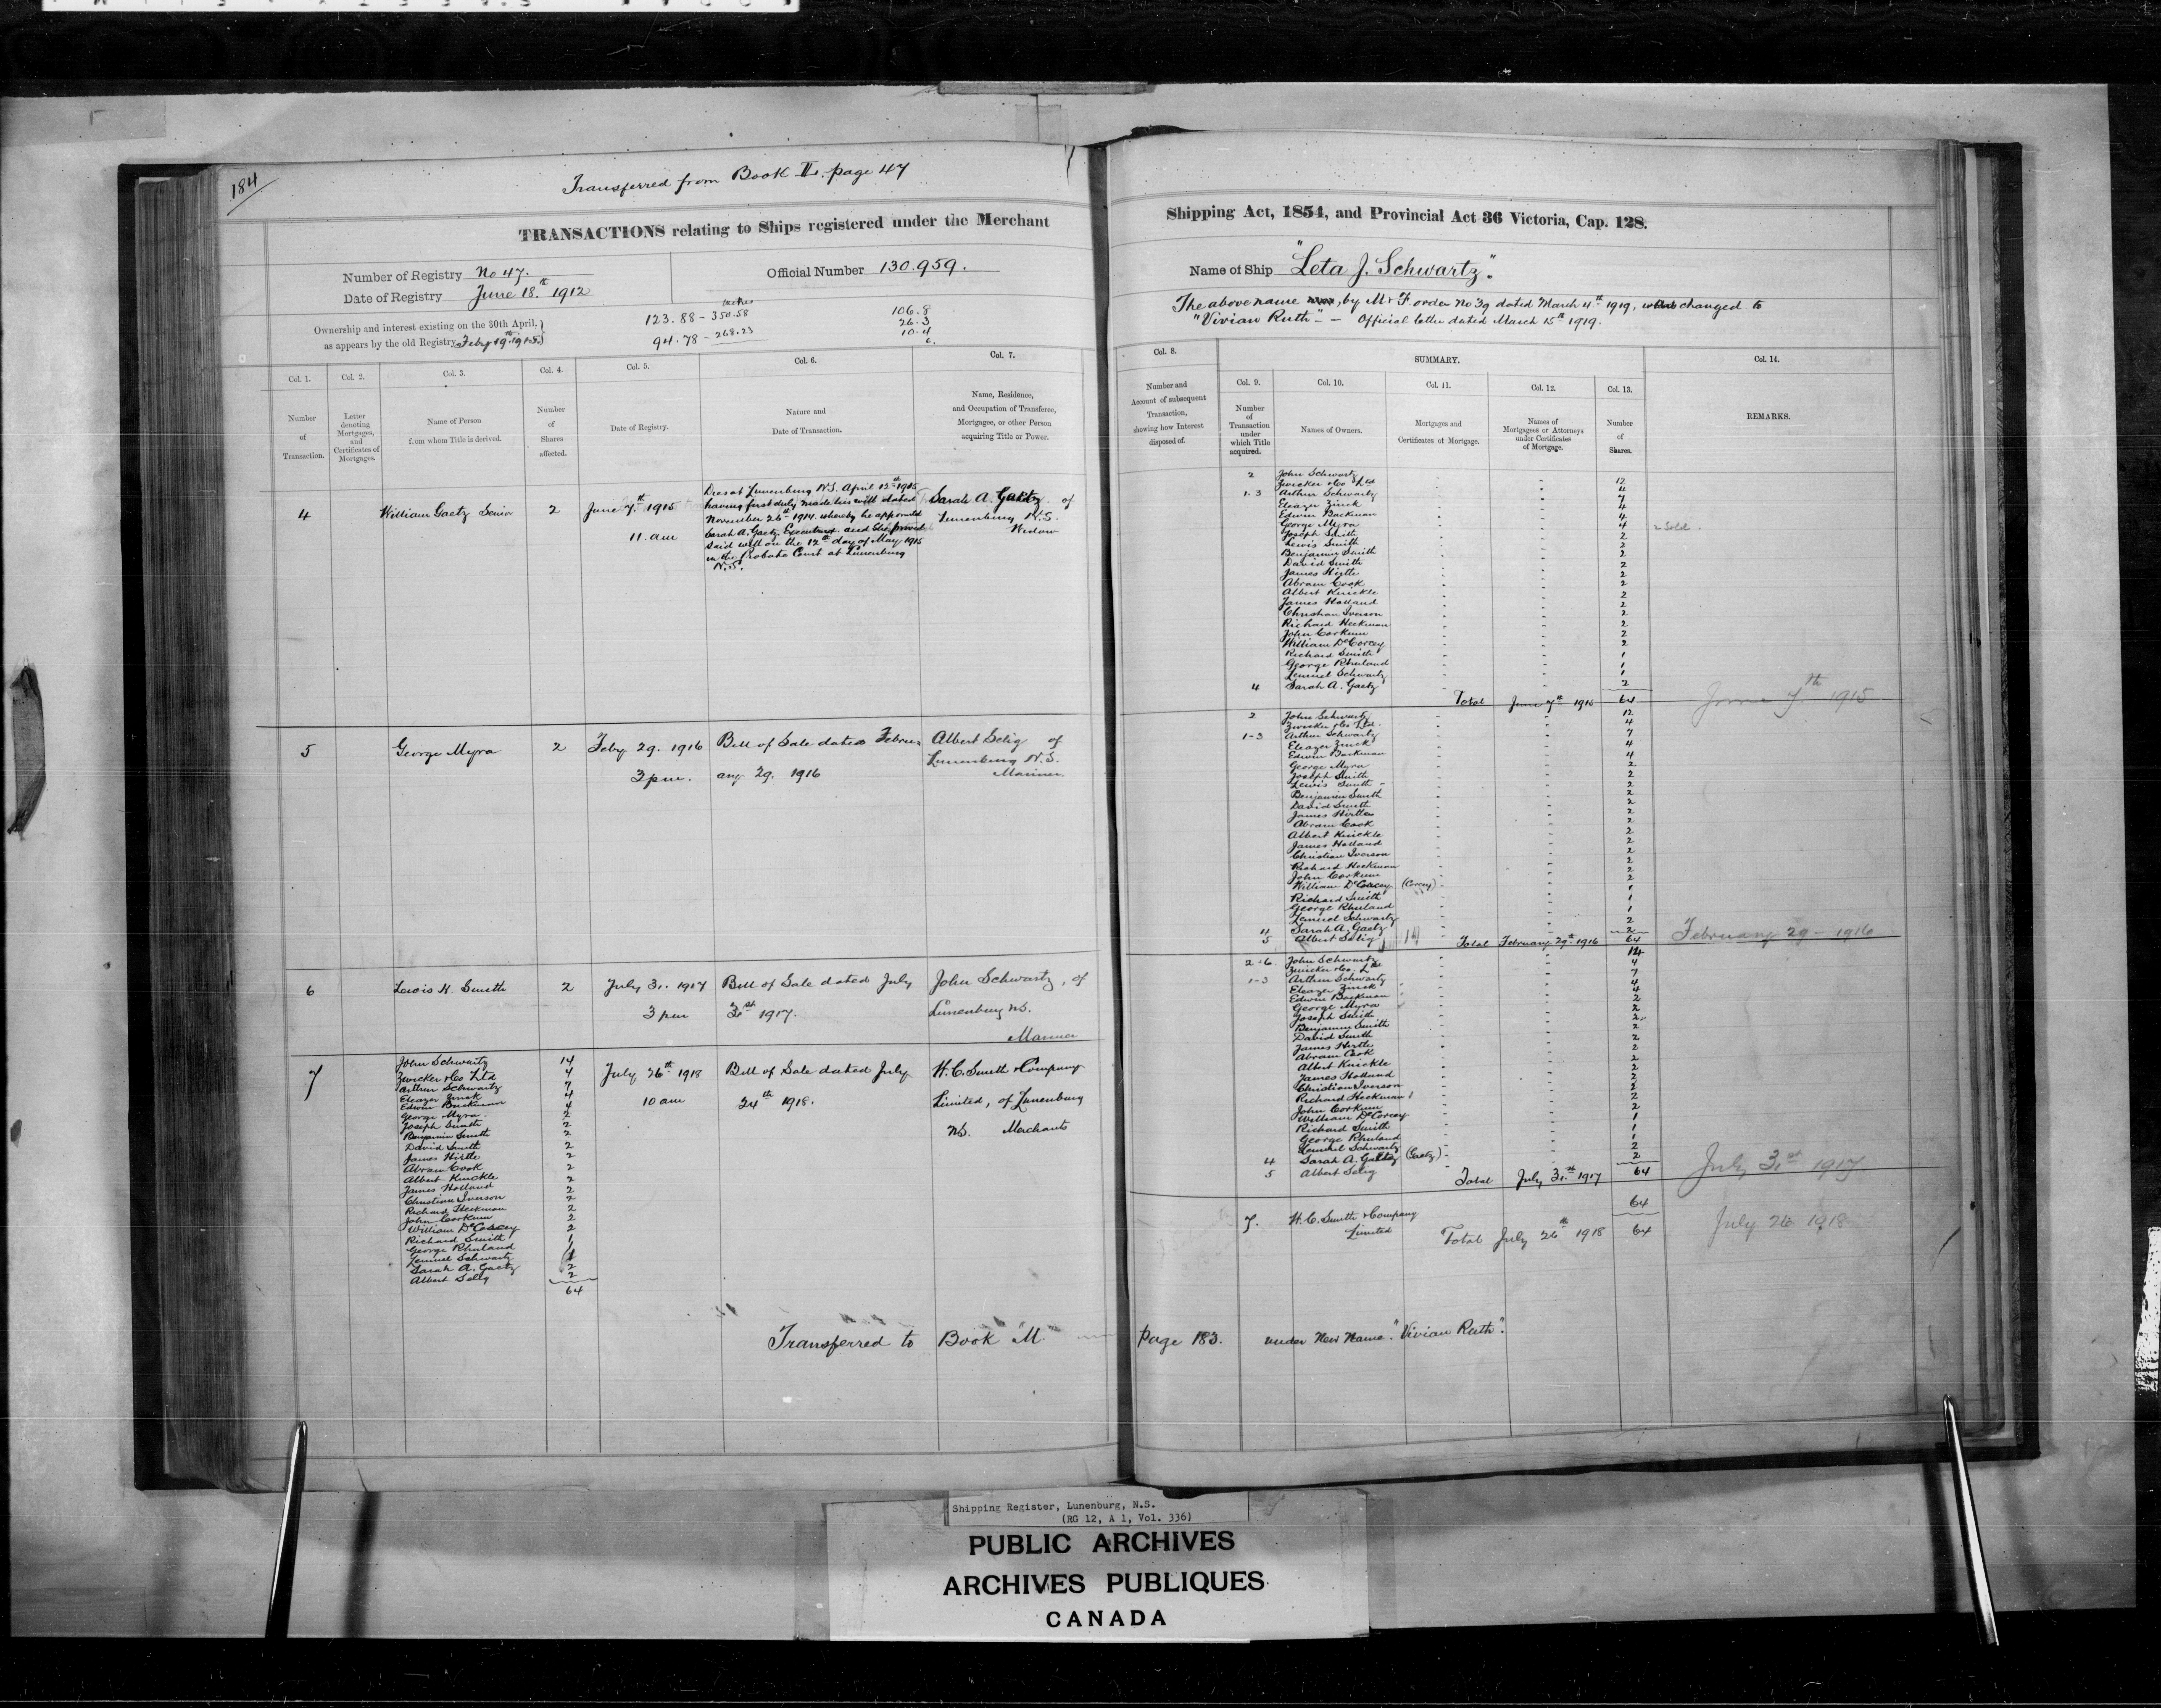 184
Transferred from Book II. page 47
TRANSACTIONS relating to Ships registered under the Merchant
Shipping Act, 1854, and Provincial Act 36 Victoria, Cap. 128.
Number of Registry No 47.
Date of Registry June 18th 1912
Official Number 130.959.
Name of Ship "Leta J. Schwartz".
The above name, by M & F order No 39 dated March 4th 1919, changed to
"Vivian Ruth" - Official letter dated March 15th 1919.
Ownership and interest existing on the 30th April,
as appears by the old Registry Feby 19th 1915
123.88 - 350.58
94.78 - 268.23
106.8
26.3
10.4
6.
Col. 1.
Number
of
Transaction.
Col. 2.
Letter
denoting
Mortgages,
and
Certificates of
Mortgages.
Col. 3.
Name of Person
from whom Title is derived.
Col. 4.
Number
of
Shares
affected.
Col. 5.
Date of Registry.
Col. 6.
Nature and
Date of Transaction.
Col. 7.
Name, Residence,
and Occupation of Transferee,
Mortgagee, or other Person
acquiring Title or Power.
Col. 8.
Number and
Account of subsequent
Transaction,
showing how Interest
disposed of.
SUMMARY.
Col. 9.
Number
of
Transaction
under
which Title
acquired.
Col. 10.
Names of Owners.
Col. 11.
Mortgages and
Certificates of Mortgage.
Col. 12.
Names of
Mortgagees or Attorneys
under Certificates
of Mortgage.
Col. 13.
Number
of
Shares.
Col. 14.
REMARKS.
4 William Gaetz Senior 2 June 7th 1915
11. am
Dies at Lunenburg N.S. April 13th 1915
having first duly made his will dated
November 26th 1914 whereby he appointed
Sarah A. Gaetz Executrix and she proved
said will on the 12th day of May 1915
in the Probate Court at Lunenburg
N.S.
Sarah A. Gaetz of
Lunenburg N.S.
Widow
2 John Schwartz 12
Zwicker & Co Ltd 4
1-3 Arthur Schwartz 7
Eleazer Zinck 4
Edwin Backman 4
George Myra 4 2 Sold.
Joseph Smith 2
Lewis Smith 2
Benjamin Smith 2
David Smith 2
James Hirtle 2
Abram Cook 2
Albert Knickle 2
James Holland 2
Christian Iverson 2
Richard Heckman 2
John Corkum 2
William DeCorcey 2
Richard Smith 1
George Rhuland 1
Lemuel Schwartz 1
4 Sarah A. Gaetz 2
Total June 7th 1915 64 June 7th 1915
5 George Myra 2 Feby 29. 1916
3 pm.
Bill of Sale dated Febru-
ary 29. 1916
Albert Selig of
Lunenburg N.S.
Mariner
2 John Schwartz 12
Zwicker & Co Ltd. 4
1-3 Arthur Schwartz 7
Eleazer Zinck 4
Edwin Backman 4
George Myra 2
Joseph Smith 2
Lewis Smith 2
Benjamin Smith 2
David Smith 2
James Hirtle 2
Abram Cook 2
Albert Knickle 2
James Holland 2
Christian Iverson 2
Richard Heckman 2
John Corkum 2
William DeCorcey (Corcey) 2
Richard Smith 1
George Rhuland 1
Lemuel Schwartz 1
4 Sarah A. Gaetz 2
5 Albert Selig 2
Total February 29th 1916 64 February 29 - 1916
6 Lewis H. Smith 2 July 31. 1917
3 pm
Bill of Sale dated July
31st 1917.
John Schwartz, of
Lunenburg NS.
Mariner
2-6 John Schwartz 14
Zwicker & Co. Ltd 4
1-3 Arthur Schwartz 7
Eleazer Zinck 4
Edwin Backman 4
George Myra 2
Joseph Smith 2
Benjamin Smith 2
David Smith 2
James Hirtle 2
Abram Cook 2
Albert Knickle 2
James Holland 2
Christian Iverson 2
Richard Heckman 2
John Corkum 2
William DeCorcey 2
Richard Smith 1
George Rhuland 1
Lemuel Schwartz 1
4 Sarah A. Gaetz (Gaetz) 2
5 Albert Selig 2
Total July 31st 1917 64 July 31st 1917
7 John Schwartz 14
Zwicker & Co Ltd 4
Arthur Schwartz 7
Eleazer Zinck 4
Edwin Backman 4
George Myra 2
Joseph Smith 2
Benjamin Smith 2
David Smith 2
James Hirtle 2
Abram Cook 2
Albert Knickle 2
James Holland 2
Christian Iverson 2
Richard Heckman 2
John Corkum 2
William DeCorcey 2
Richard Smith 1
George Rhuland 1
Lemuel Schwartz 1
Sarah A. Gaetz 2
Albert Selig 2
64
July 26th 1918
10 am
Bill of Sale dated July
24th 1918.
H.C. Smith & Company
Limited, of Lunenburg
NS. Merchants
7. H.C. Smith & Company
Limited
64
Total July 26th 1918 64 July 26 1918
Transferred to Book "M" page 183. under New Name "Vivian Ruth".
Shipping Register, Lunenburg, N.S.
(RG 12, A 1, Vol. 336)
PUBLIC ARCHIVES
ARCHIVES PUBLIQUES
CANADA